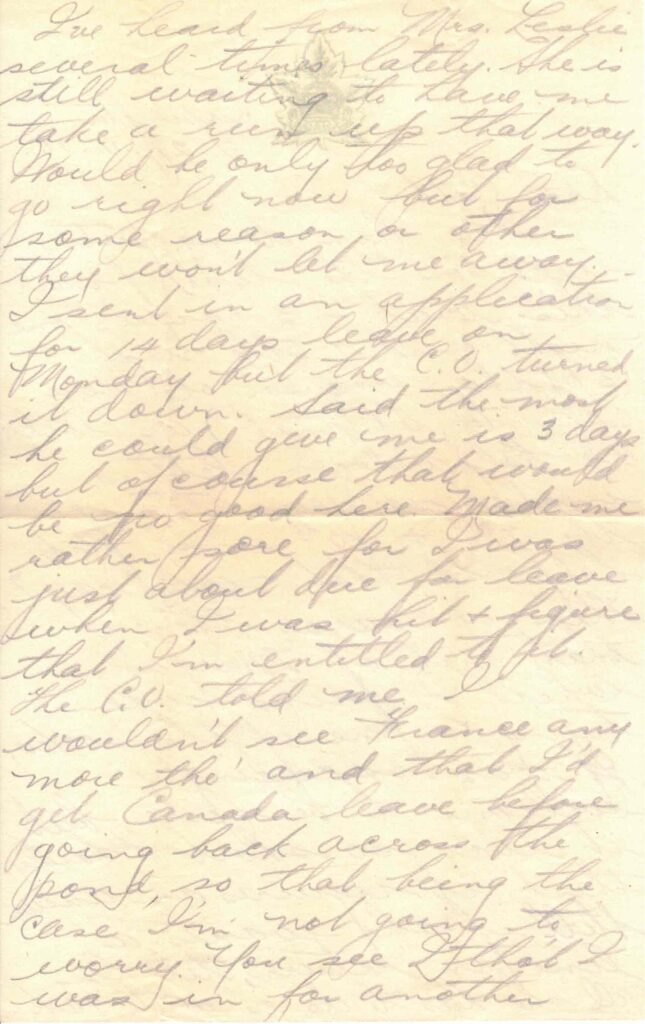 I've heard from Mrs. Leslie
several times lately. She is
still waiting to have me
take a run up that way.
Would be only too glad to
go right now but for
some reason or other
they won't let me away.
I sent in an application
for 14 days leave on
Monday but the C.O. turned
it down. Said the most
he could give me is 3 days
but of course that would
be no good here. Made me
rather sore for I was
just about due for leave
when I was hit + figure
that I'm entitled to it.
The C.O. told me I
wouldn't see France any
more tho' and that I'd
get Canada leave before
going back across the
pond, so that being the
case I'm not going to
worry. You see I tho't I
was in for another